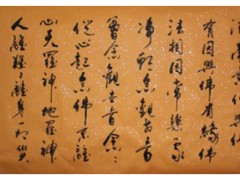 有因與佛有緣佛
法相因常樂我
净朝念觀世音
暮念觀世音念〻
從心起念佛不離
心天羅神地羅神
人離難〻離身一切災